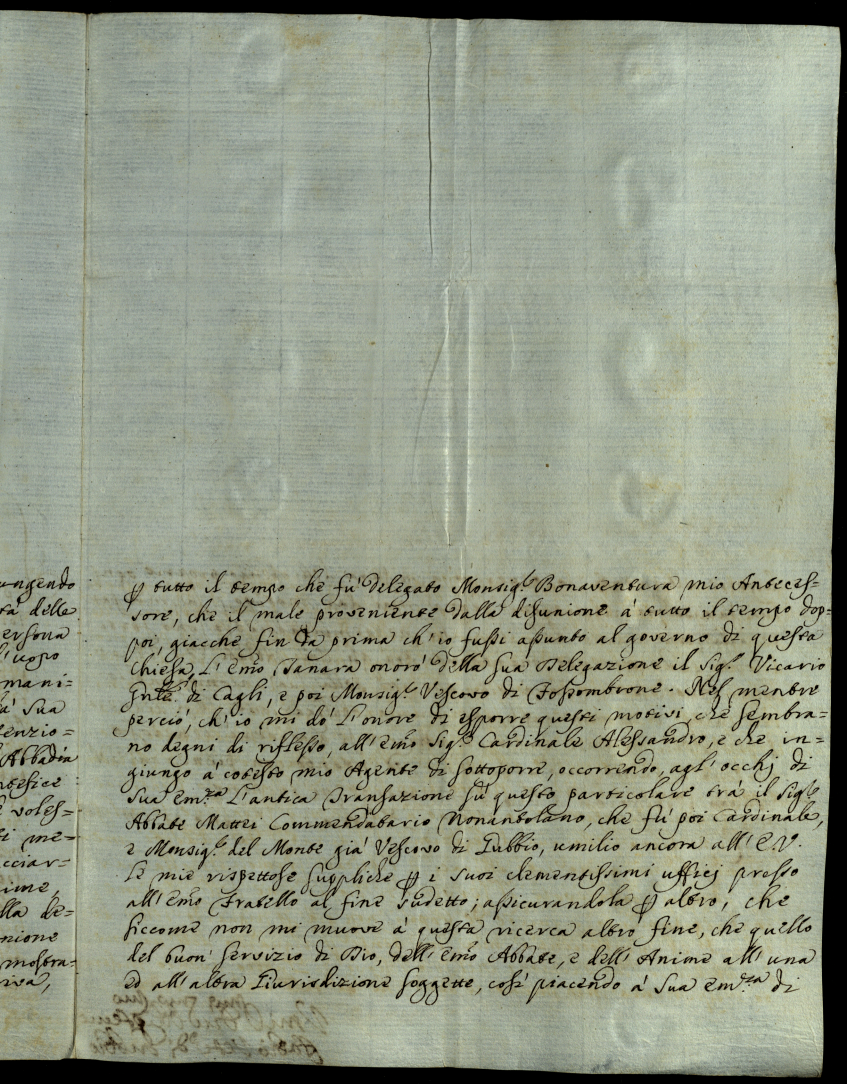 ungendo
tà delle
ersona
l'uopo
mani-
à sua
tenzio=
Abbadia
ntefice
voles=
ti me=
cciar=
ime,
lla de=
nione
mostra=
rva,
ꝑ tutto il tempo che fù Delegato Monsig.r Bonaventura mio Anteces=
sore, che il male proveniente dalla disunione à tutto il tempo dop=
poi, giacche fin da prima ch'io fussi assunto al governo di questa
Chiesa, L'emõ Tanara onorò della sua Delegazione il Sig.r Vicario
Gnle di Cagli, e poi Monsig.r Vescovo di Fossombrone. Nel mentre
perciò, ch'io mi dò L'onore di esporre questi motivi, che sembra=
no degni di riflesso, all'emõ Sig.r Cardinale Alessandro, e che in=
giungo à cotesto mio Agente di sottoporre, occorrendo, agl'occhj di
Sua em.za L'antica Transazione sù questo particolare trà il Sig.r
Abbate Mattei Commendatario Nonantolano, che fù poi Cardinale,
e Monsig.r del Monte già Vescovo di Gubbio, umilio ancora all'E.V.
Le mie rispettose suppliche ꝑ i suoi clementissimi ufficj presso
all'emõ Fratello al fine sudetto; assicurandola ꝑ altro, che
siccome non mi muove à questa ricerca altro fine, che quello
del buon servizio di Dio, dell'emõ Abbate, e dell'Anime all'una
ed all'altra Giurisdizione soggette, così piacendo à Sua em.za di